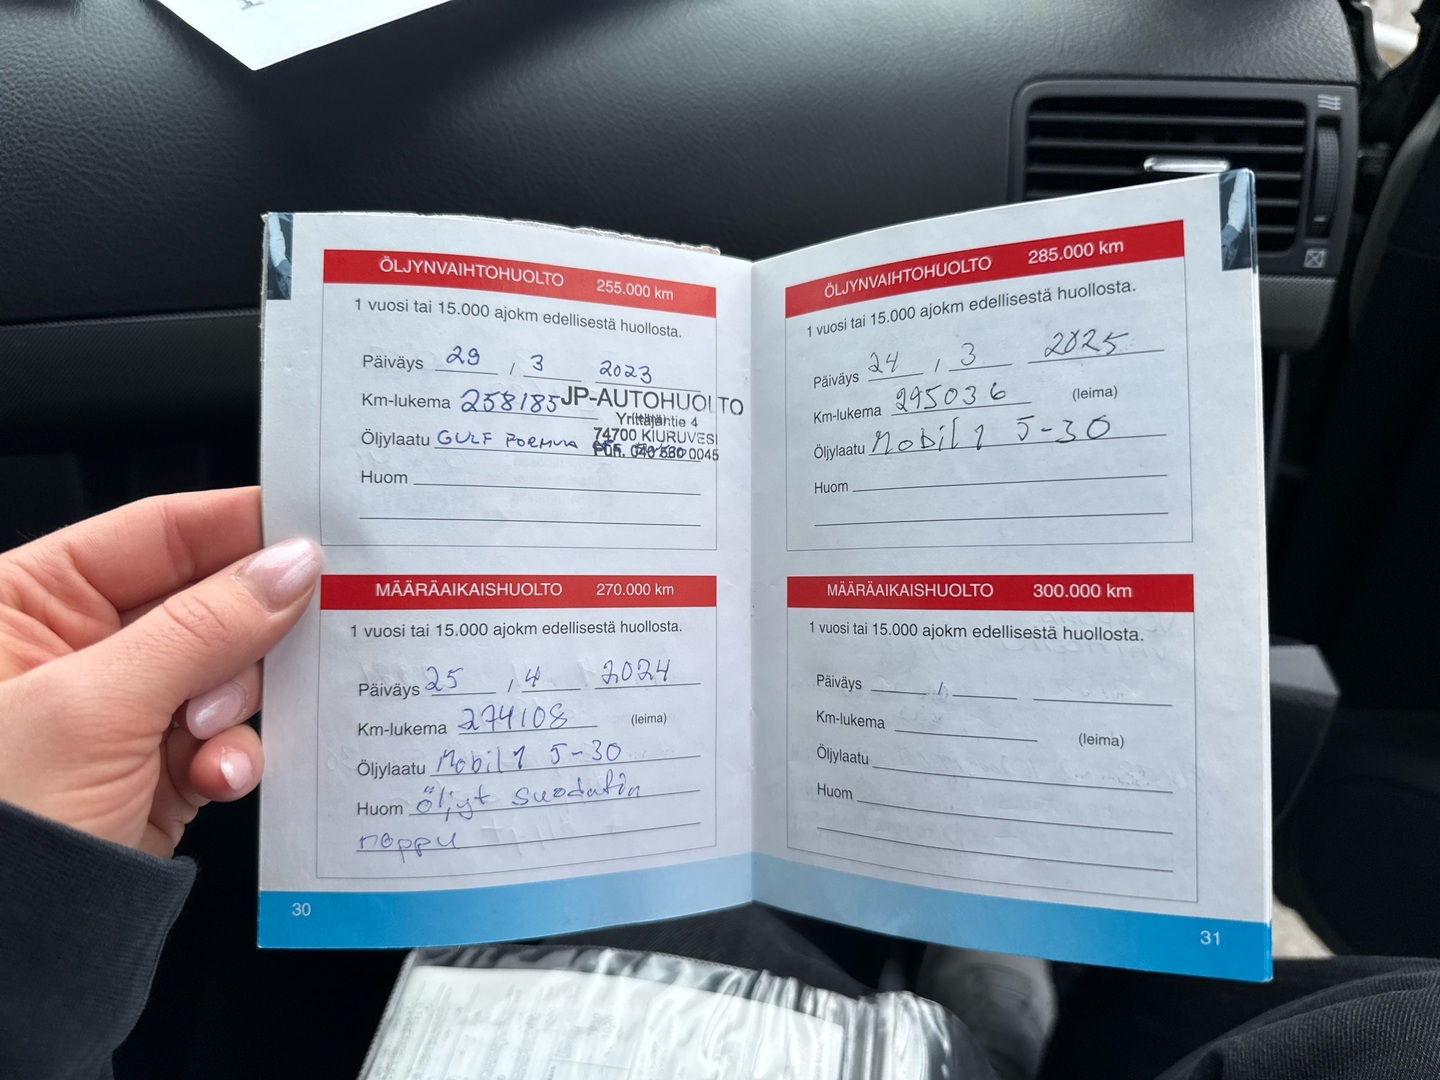 ÖLJYNVAIHTOHUOLTO 255.000 km
1 vuosi tai 15.000 ajokm edellisestä huollosta.
Päiväys 29 , 3 2023
Km-lukema 258185 JP-AUTOHUOLTO
Yrittäjäntie 4
Öljylaatu GULF FORMULA 74700 KIURUVESI
Puh. 040 580 0045
Huom
MÄÄRÄAIKAISHUOLTO 270.000 km
1 vuosi tai 15.000 ajokm edellisestä huollosta.
Päiväys 25 , 4 2024
Km-lukema 274108 (leima)
Öljylaatu Mobil 1 5-30
Huom öljyt suodatin
noppu
30
ÖLJYNVAIHTOHUOLTO 285.000 km
1 vuosi tai 15.000 ajokm edellisestä huollosta.
Päiväys 24 , 3 2025
Km-lukema 295036 (leima)
Öljylaatu Mobil 1 5-30
Huom
MÄÄRÄAIKAISHUOLTO 300.000 km
1 vuosi tai 15.000 ajokm edellisestä huollosta.
Päiväys ,
Km-lukema (leima)
Öljylaatu
Huom
31